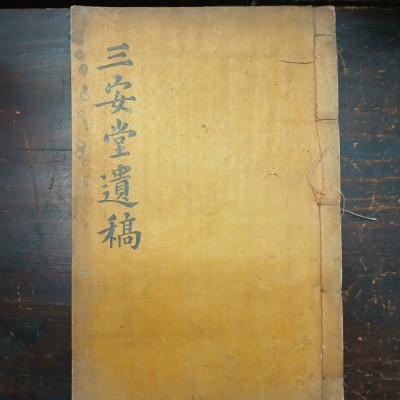 三安堂遺稿